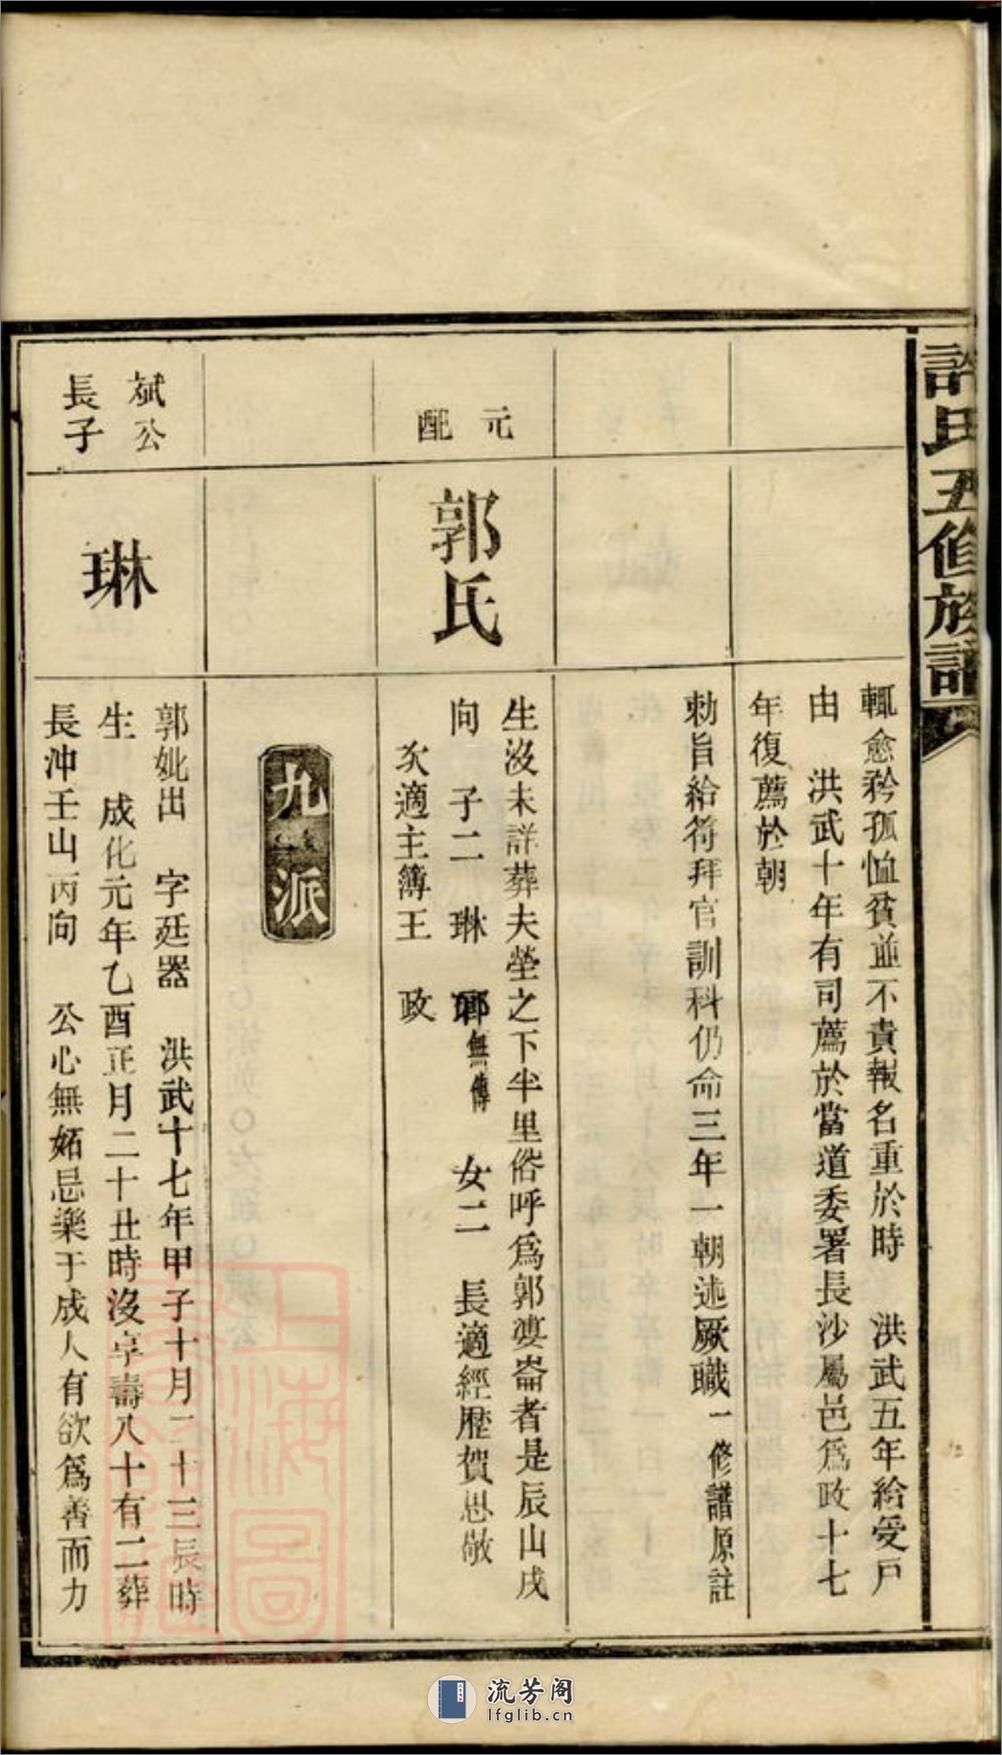 許氏五修族譜
輒愈矜孤恤貧並不責報名重於時　洪武五年給受戶
由　洪武十年有司薦於當道委署長沙屬邑爲政十七
年復薦於朝
勅旨給符拜官訓科仍命三年一朝述厥職一修譜原註
元配
郭氏
生沒未詳葬夫塋之下半里俗呼爲郭婆崙者是辰山戌
向　子二　琳　無傳　女二　長適經歷賀思敬
次適主簿王　政
九派
斌公長子
琳
郭妣出　字廷器　洪武十七年甲子十月二十三辰時
生　成化元年乙酉正月二十丑時沒享壽八十有二葬
長沖壬山丙向　公心無妬忌樂于成人有欲爲善而力
上海圖書館藏
流芳阁
lfglib.cn